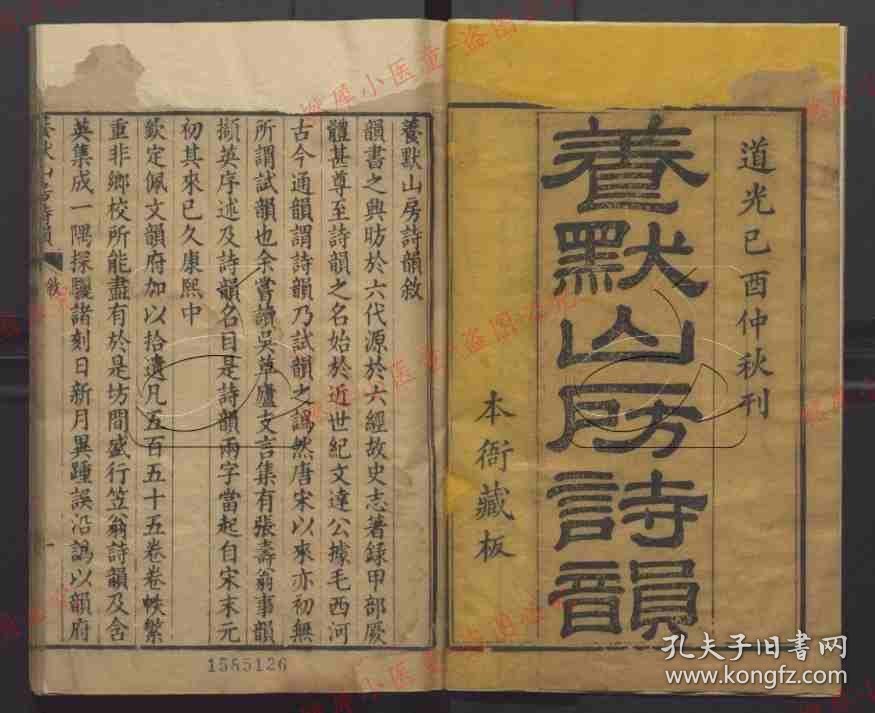 道光己酉仲秋刊
養默山房詩韻
本衙藏板
養默山房詩韻敘
韻書之興昉於六代源於六經故史志著錄甲部厥
體甚尊至詩韻之名始於近世紀文達公據毛西河
古今通韻謂詩韻乃試韻之譌然唐宋以來亦初無
所謂試韻也余嘗讀吳草廬支言集有張壽翁事韻
擷英序述及詩韻名目是詩韻兩字當起自宋末元
初其來已久康熙中
欽定佩文韻府加以拾遺凡五百五十五卷卷帙繁
重非鄉校所能盡有於是坊間盛行笠翁詩韻及含
英集成一隅探驪諸刻日新月異踵誤沿譌以韻府
養默山房詩韻
敘
一
1585126
孔夫子旧书网
www.kongfz.com
小医童-盗图